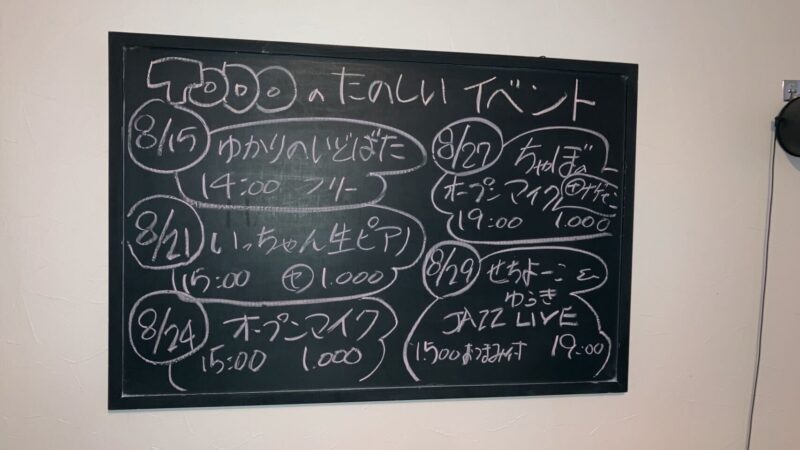 TODO の たのしい イベント
8/15 ゆかりのいどばた
14:00 フリー
8/21 いっちゃん生ピアノ
15:00 ㋲ 1.000
8/24 オープンマイク
15:00 1.000
8/27 ちゃぼの
オープンマイク
19:00 1.000
8/29 せちよーこ &
ゆうき
JAZZ LIVE
1500 おつまみ付 19:00